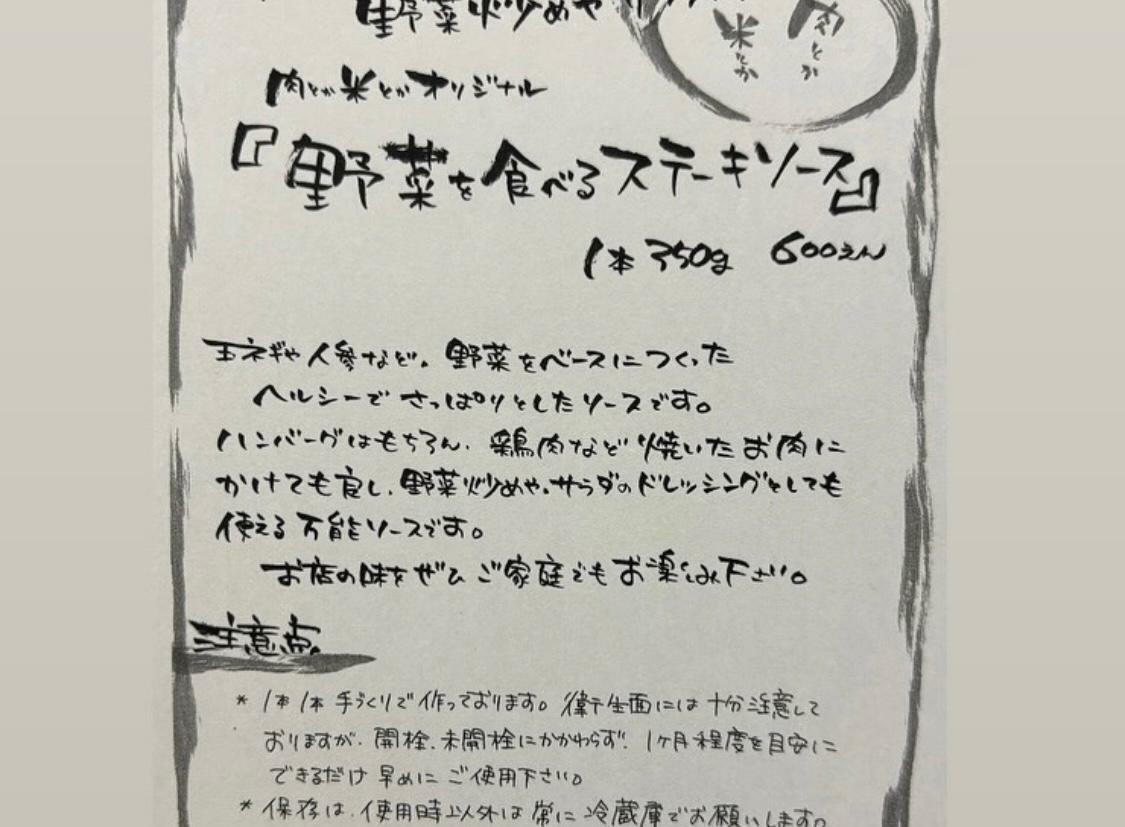 野菜炒めや
肉とか
米とか
肉とか米とかオリジナル
『野菜を食べるステーキソース』
1本 350g 600えん
玉ネギや人参など、野菜をベースにつくった
ヘルシーでさっぱりとしたソースです。
ハンバーグはもちろん、鶏肉など焼いたお肉に
かけても良し、野菜炒めや、サラダのドレッシングとしても
使える万能ソースです。
お店の味をぜひご家庭でもお楽しみ下さい。
注意点
* 1本1本手づくりで作っております。衛生面には十分注意して
おりますが、開栓、未開栓にかかわらず、1ヶ月程度を目安に
できるだけ早めにご使用下さい。
* 保存は、使用時以外は常に冷蔵庫でお願いします。